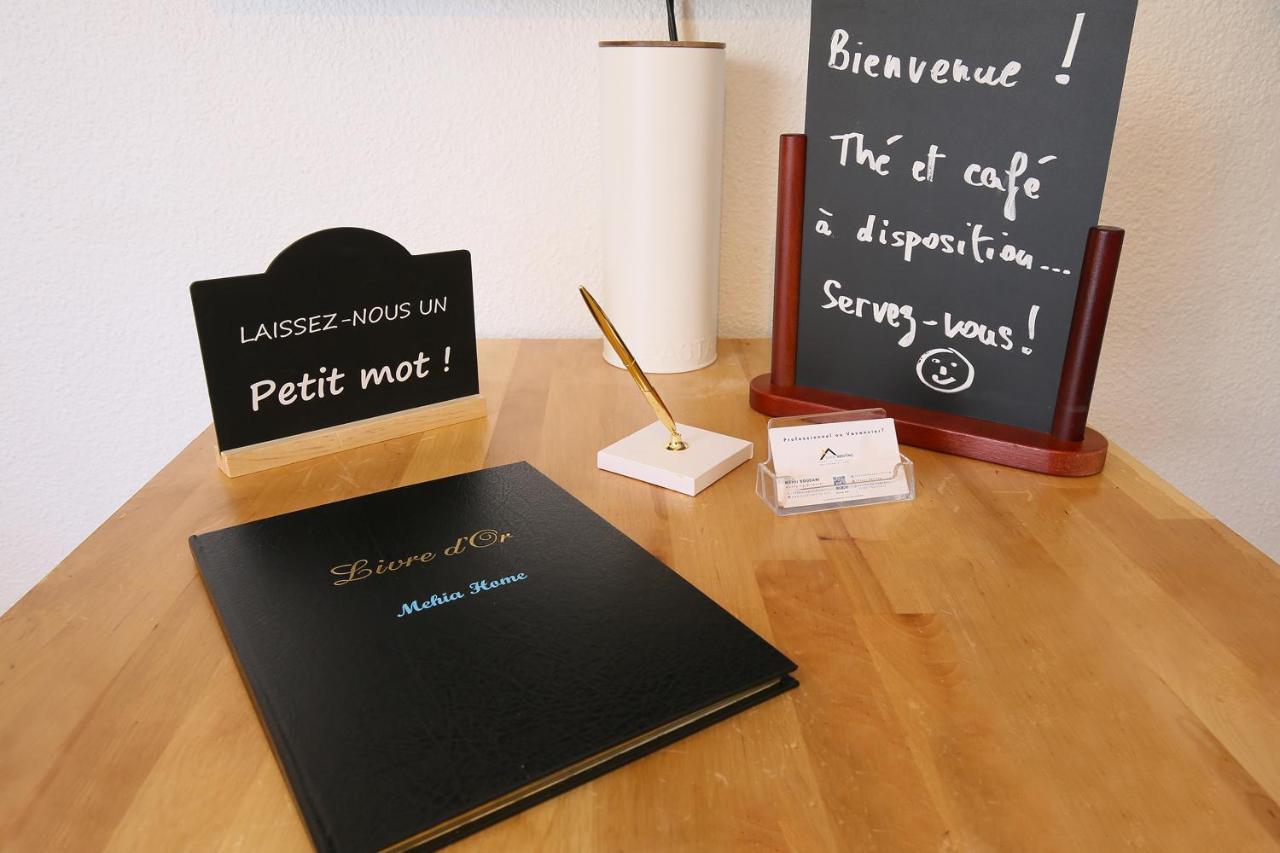 Bienvenue !
Thé et café
à disposition...
Servez-vous !
LAISSEZ-NOUS UN
Petit mot !
Professionnel ou Vacancier?
Livre d'Or
Mehia Home